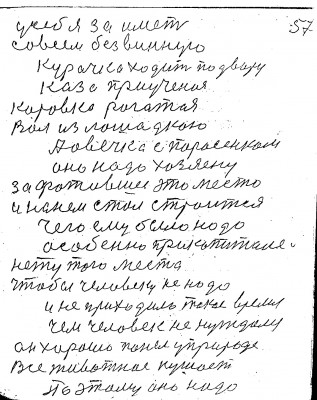 57
себя заимет
совсем безвинную
Курочка ходит по двору
Каза приученая
Коровка рогатая
Вол из лошадкою
Аовечка с паросенкам
оно надо хозяену
захватовши это место
и нанем стол строится
чего ему было надо
особенно при капитале.
нету того места
Чтобы человеку не надо
и не приходило такое время
Чем человек не нуждалу
он хорошо понел уприроде
Все животное кушает
Поэтому оно надо